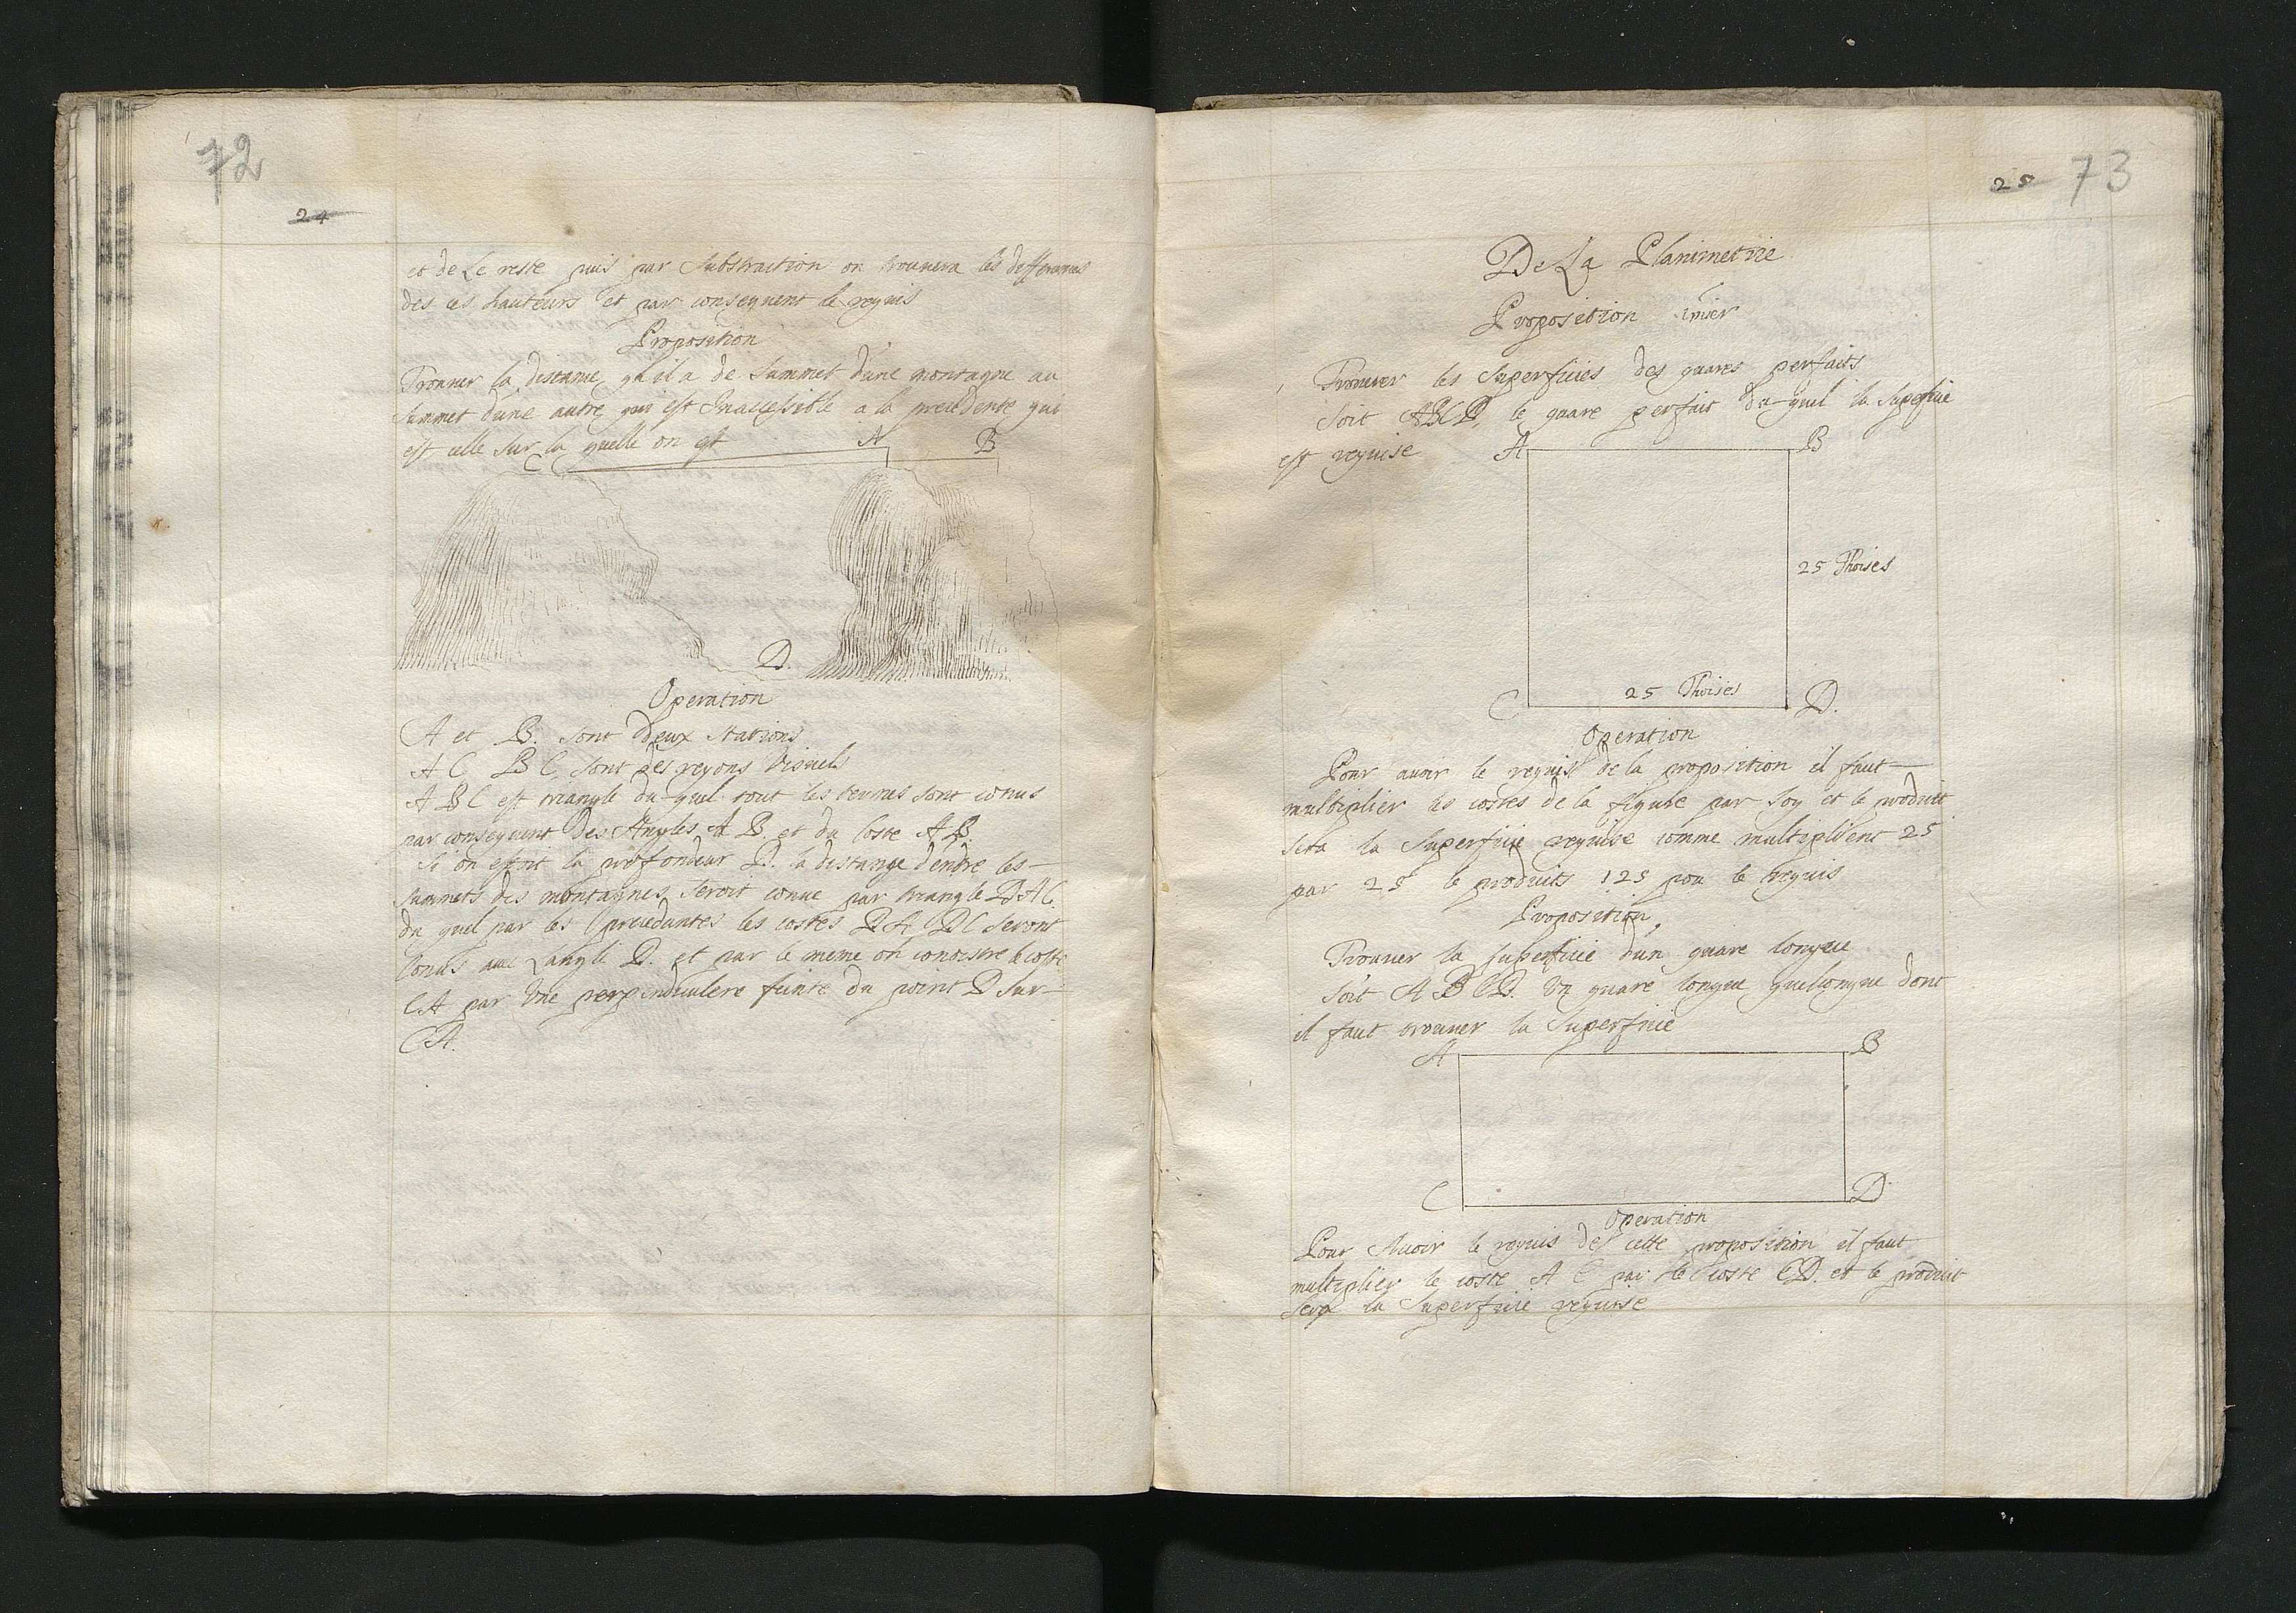 72
24
et de Le reste puis par Substraction on trouvera les differences
des ces hauteurs et par consequent le requis
Proposition
Trouver la distance qu il a de Summet d'une montagne au
Summet d'une autre qui est Inaccessible a la precedente qui
est celle sur la quelle on est
C A B
D.
Operation
A et B. sont deux stations
A C B C sont des reyons visuels
A B C est triangle du quel tout les termes sont conus
par consequent des Angles A B et du Coste A B.
Si on estoit la profondeur D. la distange d'entre les
summets des montagnes seroit conue par triangle D A C.
du quel par les precedantes les costes D A D C seront
Conus avec L'angle D. et par le meme on conoistre le coste
C A par Une perpendiculere feinte du point D sur
C A.
25 73
De La Planimetrie
Proposition 1mier
Trouver les Superficies des quares perfaits
Soit A B C D, le quare perfait du quel la Superficie
est requise
A B
25 Thoises
25 Thoises
C D.
Operation
Pour avoir le requist de la proposition il faut
multiplier les costes de la figure par Soy et le produit
sera la Superficie requise comme multiplient 25
par 25 le produits 125 pou le requis
Proposition
Trouver la superficie d'un quare longue
Soit A B C D. Un quare longue quelconque dont
il faut trouver la Superficie
A B
C D
Operation
Pour Avoir le requis de cette proposition il faut
multiplier le coste A C par le coste C D. et le produit
sera la Superficie requise